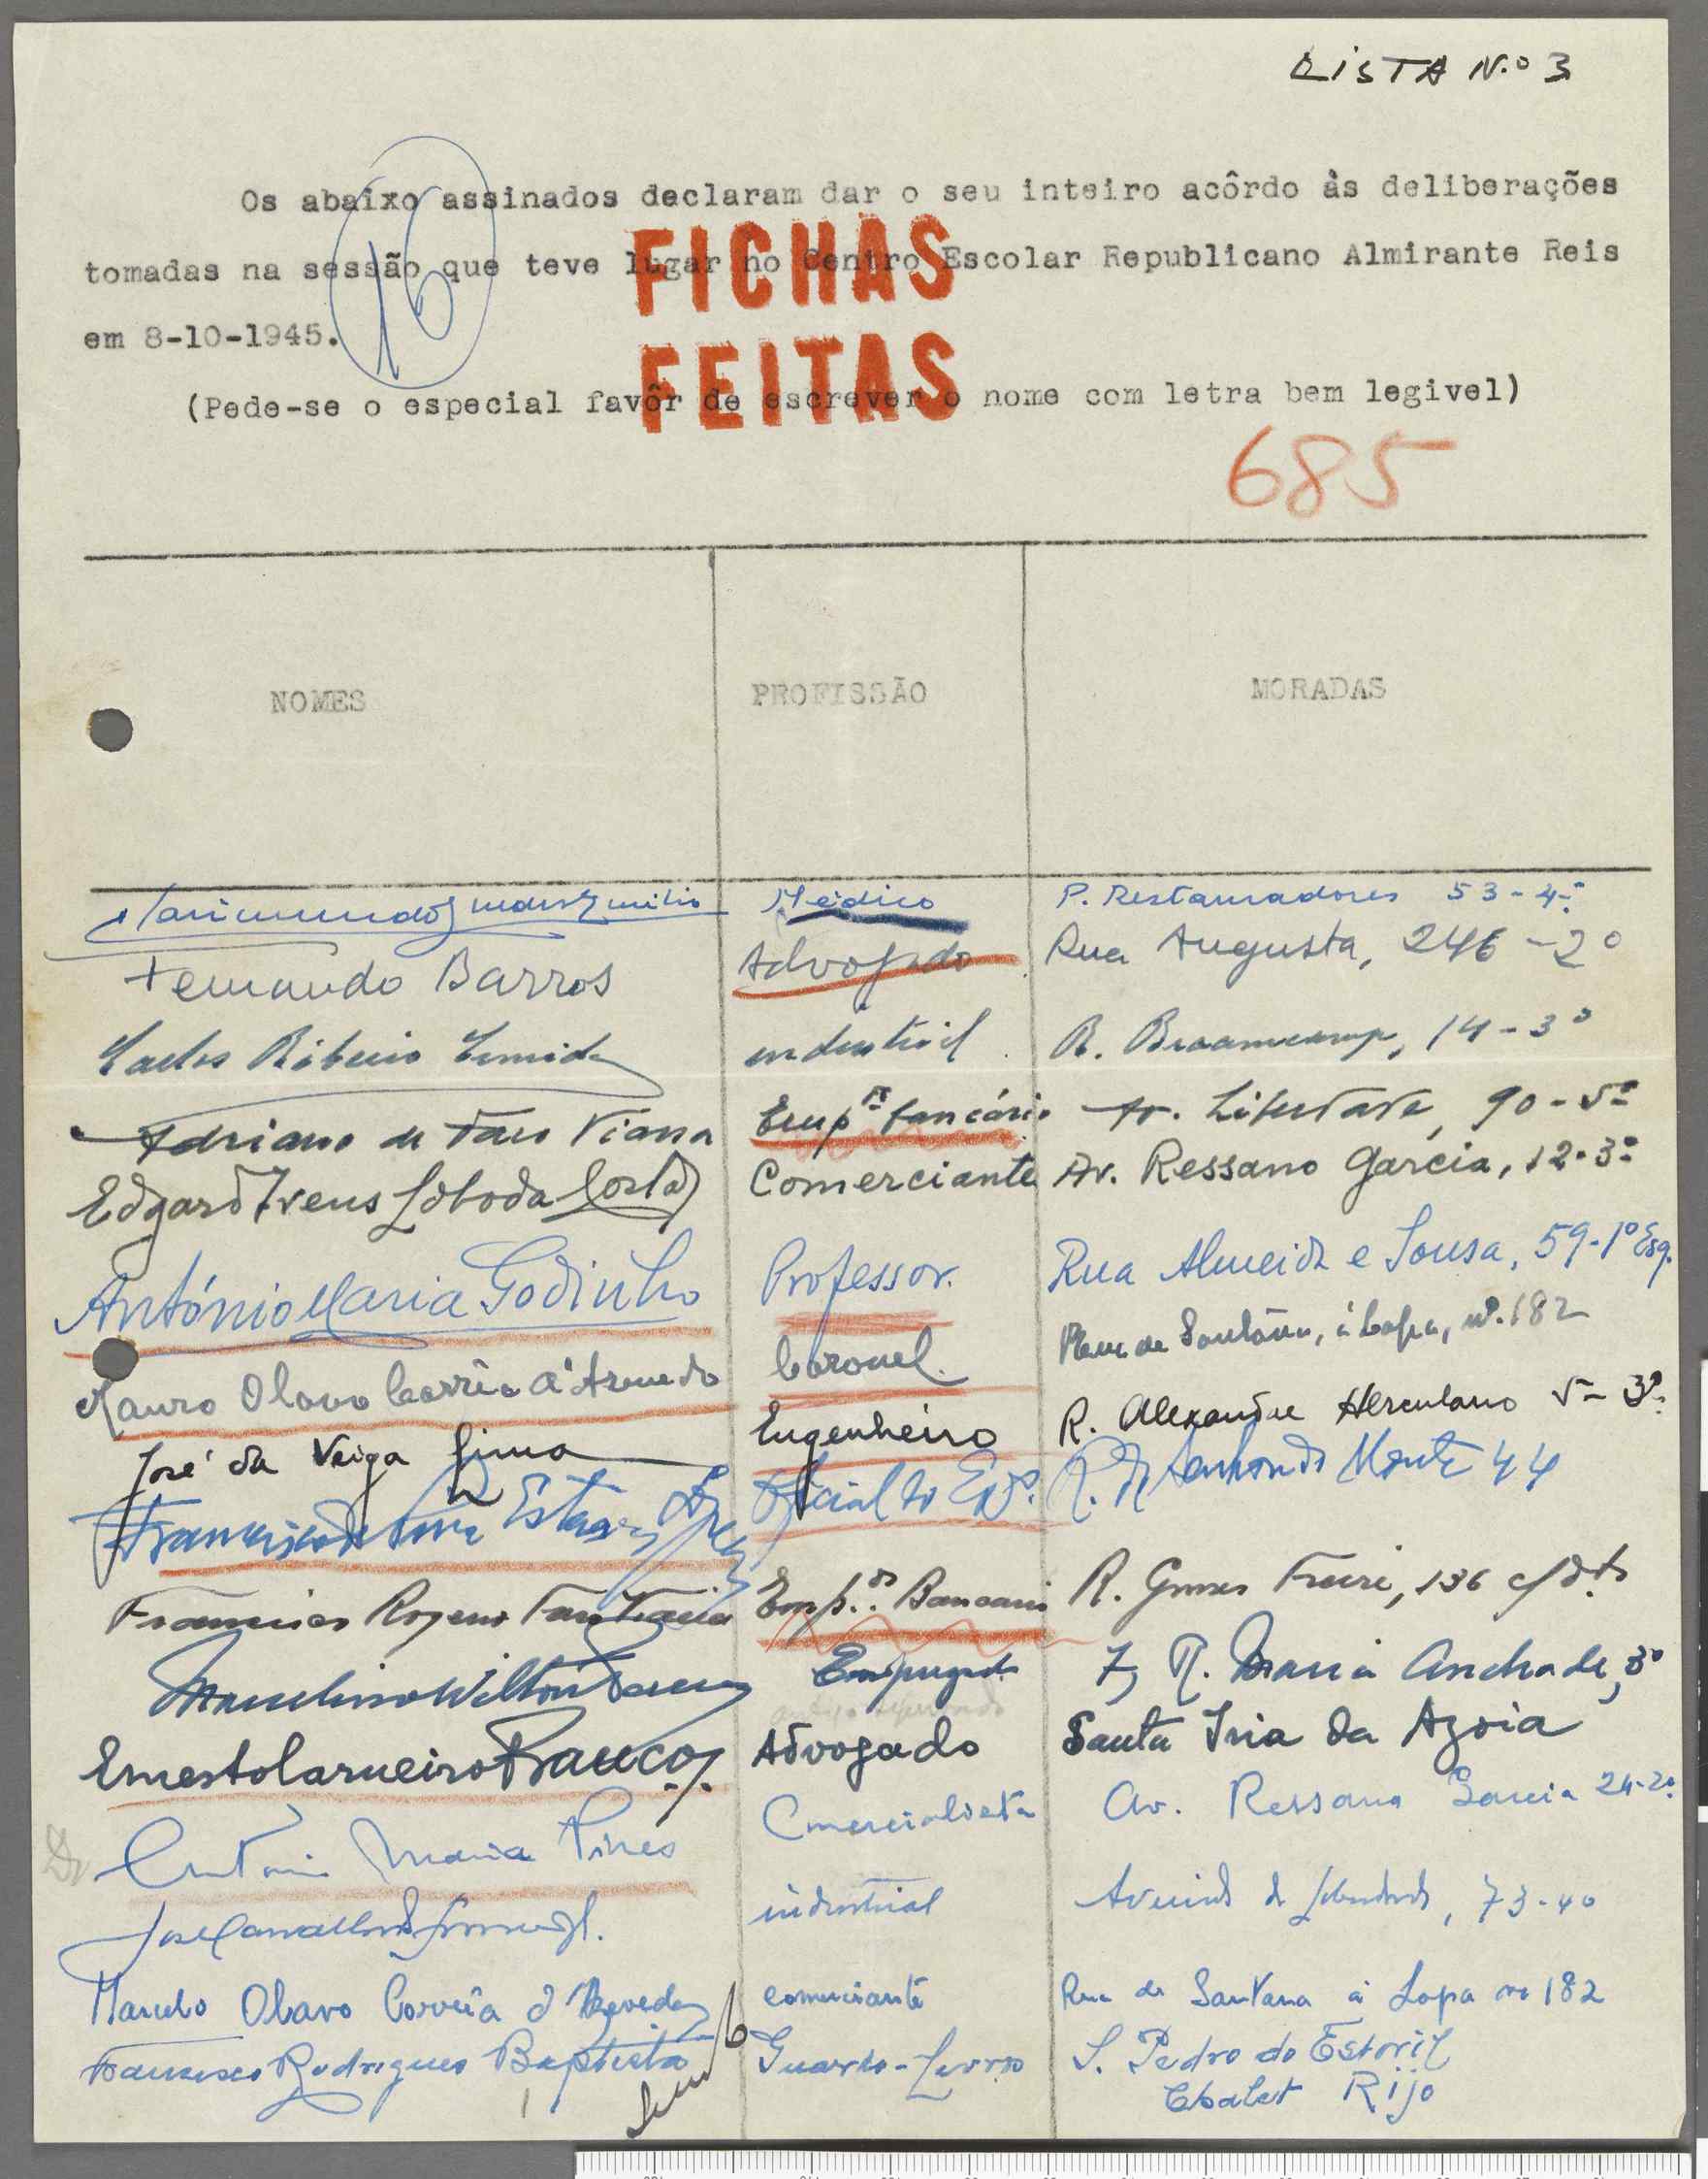 LISTA N.º 3
Os abaixo assinados declaram dar o seu inteiro acôrdo às deliberações
tomadas na sessão que teve lugar no Centro Escolar Republicano Almirante Reis
em 8-10-1945.
16
FICHAS
FEITAS
(Pede-se o especial favôr de escrever o nome com letra bem legivel)
685
NOMES PROFISSÃO MORADAS
Médico P. Restauradores 53-4º
Fernando Barros Advogado Rua Augusta, 246-2º
Carlos Ribeiro industrial R. Braamcamp, 14-3º
Adriano de Faro Viana Empº bancário Av. Liberdade, 90-5º
Edgard Ivens Lôboda Costa Comerciante Av. Ressano Garcia, 12-3º
António Maria Godinho Professor. Rua Almeida e Sousa, 59-1º Esq.
Mauro Olavo Corrêa d'Azevedo Coronel. Rua de Santana, à Lapa, nº 182
José da Veiga Lima Engenheiro R. Alexandre Herculano 5-3º
Francisco Oficial do R. 44
Francisco Rogerio Faro Viana Emp.º Bancario R. Gomes Freire, 136 c/dto
Empregado 7, R. Maria Andrade, 3º
Ernesto Carneiro Franco Advogado Santa Iria da Azoia
Dr António Maria Pires Comercialista Av. Ressano Garcia 24-2º
José Carvalho industrial Avenida da Liberdade, 73-4º
Marcelo Olavo Corrêa d'Azevedo comerciante Rua de Santana à Lapa nº 182
Francisco Rodrigues Baptista Guarda-Livros S. Pedro do Estoril
Chalet Rijo